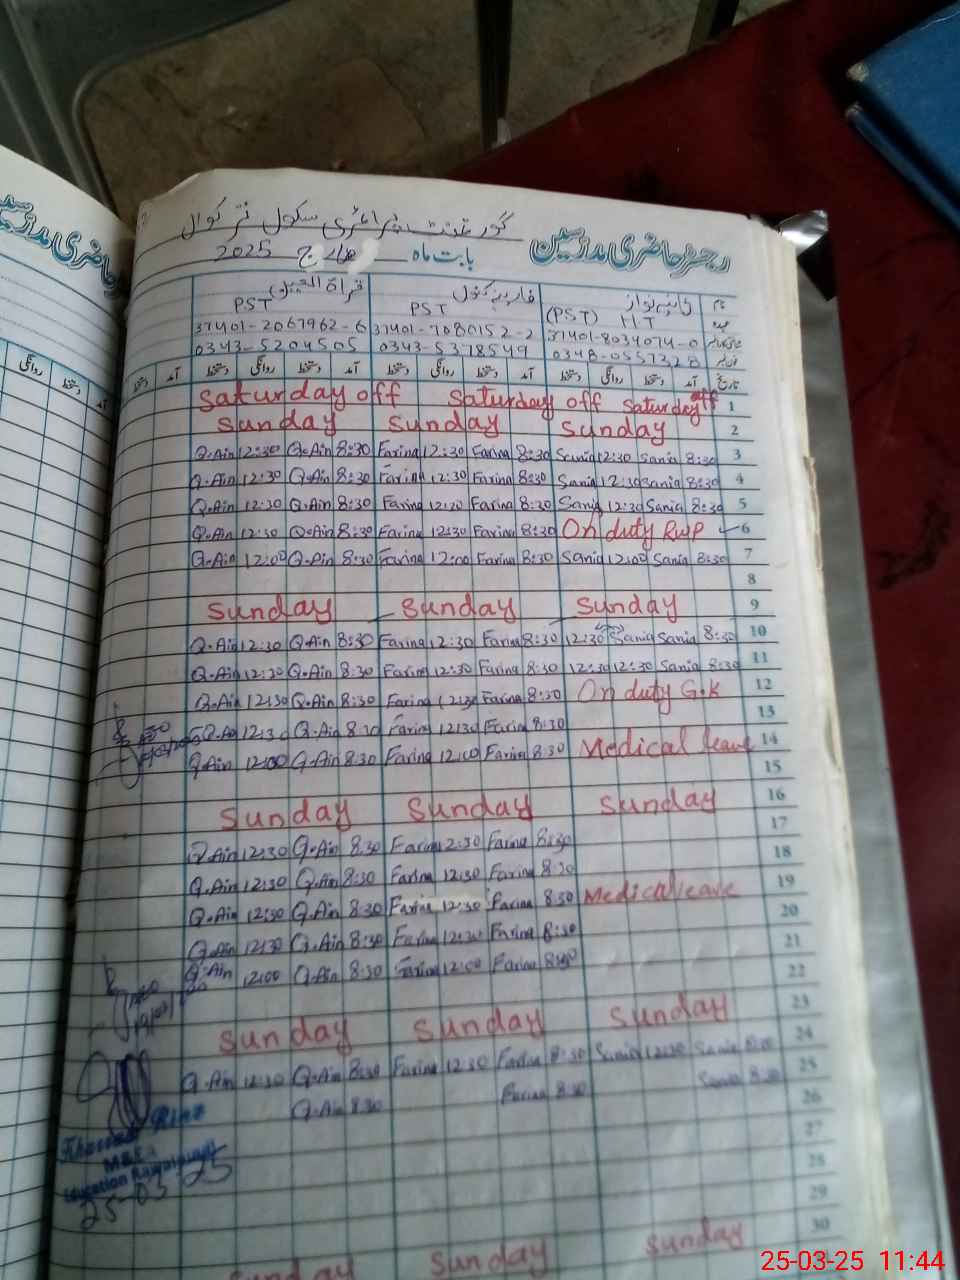 گورنمنٹ پرائمری سکول نتر کوال
رجسٹر حاضری مدرسین بابت ماہ مارچ 2025
نام
PST PST (PST) HT
37401-2067962-6 37401-7080152-2 37401-8034074-0
0343-5204505 0343-5378549 0348-0557328
تاریخ آمد دستخط روانگی دستخط آمد دستخط روانگی دستخط آمد دستخط روانگی دستخط آمد دستخط
Saturday off Saturday off Saturday off 1
Sunday Sunday Sunday 2
Q.Ain 12:30 Q.Ain 8:30 Farina 12:30 Farina 8:30 Sania 12:30 Sania 8:30 3
Q.Ain 12:30 Q.Ain 8:30 Farina 12:30 Farina 8:30 Sania 12:30 Sania 8:30 4
Q.Ain 12:30 Q.Ain 8:30 Farina 12:30 Farina 8:30 Sania 12:30 Sania 8:30 5
Q.Ain 12:30 Q.Ain 8:30 Farina 12:30 Farina 8:30 On duty RWP 6
Q.Ain 12:00 Q.Ain 8:30 Farina 12:00 Farina 8:30 Sania 12:00 Sania 8:30 7
8
Sunday Sunday Sunday 9
Q.Ain 12:30 Q.Ain 8:30 Farina 12:30 Farina 8:30 12:30 Sania Sania 8:30 10
Q.Ain 12:30 Q.Ain 8:30 Farina 12:30 Farina 8:30 12:30 12:30 Sania 8:30 11
Q.Ain 12:30 Q.Ain 8:30 Farina 12:30 Farina 8:30 On duty G.K 12
Q.Ain 12:30 Q.Ain 8:30 Farina 12:30 Farina 8:30 13
Q.Ain 12:00 Q.Ain 8:30 Farina 12:00 Farina 8:30 Medical leave 14
15
Sunday Sunday Sunday 16
Q.Ain 12:30 Q.Ain 8:30 Farina 2:30 Farina 8:30 17
Q.Ain 12:30 Q.Ain 8:30 Farina 12:30 Farina 8:30 18
Q.Ain 12:30 Q.Ain 8:30 Farina 12:30 Farina 8:30 Medical leave 19
Q.Ain 12:30 Q.Ain 8:30 Farina 12:30 Farina 8:30 20
Q.Ain 12:00 Q.Ain 8:30 Farina 12:00 Farina 8:30 21
22
Sunday Sunday Sunday 23
Q.Ain 12:30 Q.Ain 8:30 Farina 12:30 Farina 8:30 Sania 12:30 Sania 24
Q.Ain 8:30 Farina 8:30 Sania 8:30 25
26
27
28
29
Sunday Sunday Sunday 30
Education Rawalpindi
25-03-25
حاضری مدرسین
روانگی دستخط آمد
25-03-25 11:44